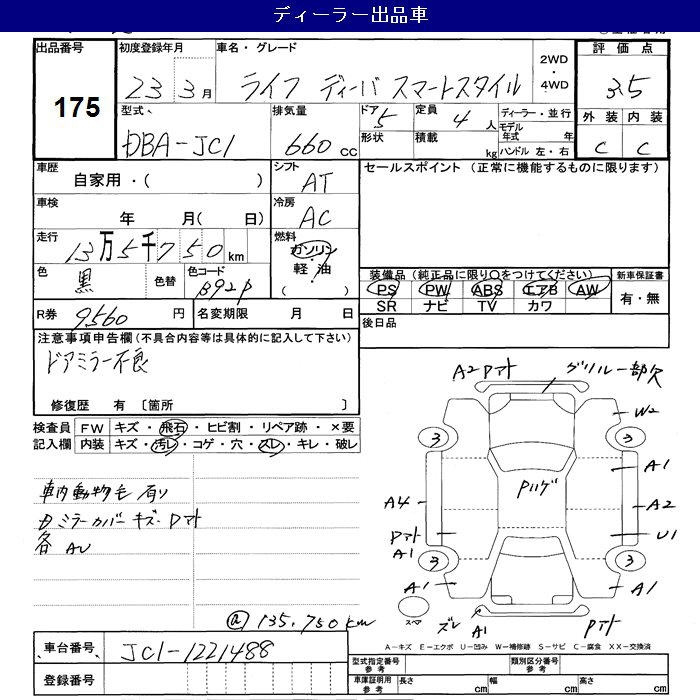 ディーラー出品車
出品番号 初度登録年月 車名・グレード 2WD・4WD 評価点
175 23 3月 ライフ ディーバ スマートスタイル 3.5
型式 排気量 ドア 定員 ディーラー・並行 外装 内装
DBA-JC1 660cc 5 4人 モデル年式 年 C C
形状 積載 kg ハンドル 左・右
車歴 シフト セールスポイント (正常に機能するものに限ります)
自家用・( ) AT
車検 冷房
年 月( 日) AC
走行 燃料
13万5千750km ガソリン・軽油
色 色替 色コード ( ) 装備品 (純正品に限り○をつけてください) 新車保証書
黒 B92P PS PW ABS エアB AW 有・無
SR ナビ TV カワ
R券 9560円 名変期限 月 日 後日品
注意事項申告欄(不具合内容等は具体的に記入して下さい)
ドアミラー不良
修復歴 有 〔箇所 〕
検査員 FW キズ・飛石・ヒビ割・リペア跡・×要
記入欄 内装 キズ・汚レ・コゲ・穴・スレ・キレ・破レ
車内動物毛有り
ミラーカバーキズ・Pマト
各AU
A2 Pマト グリル一部欠
W2
3 3
A1
Pハゲ
A4 A2
Pマト U1
A1
3 3
A1 A1
スペア ズレ A1 Pマト
135,750km
A-キズ E-エクボ U-凹み W-補修跡 S-サビ C-腐食 XX-交換済
車台番号 JC1-1221488
型式指定番号 参考 類別区分番号 参考
登録番号
車庫証明用 参考 長さ cm 幅 cm 高さ cm